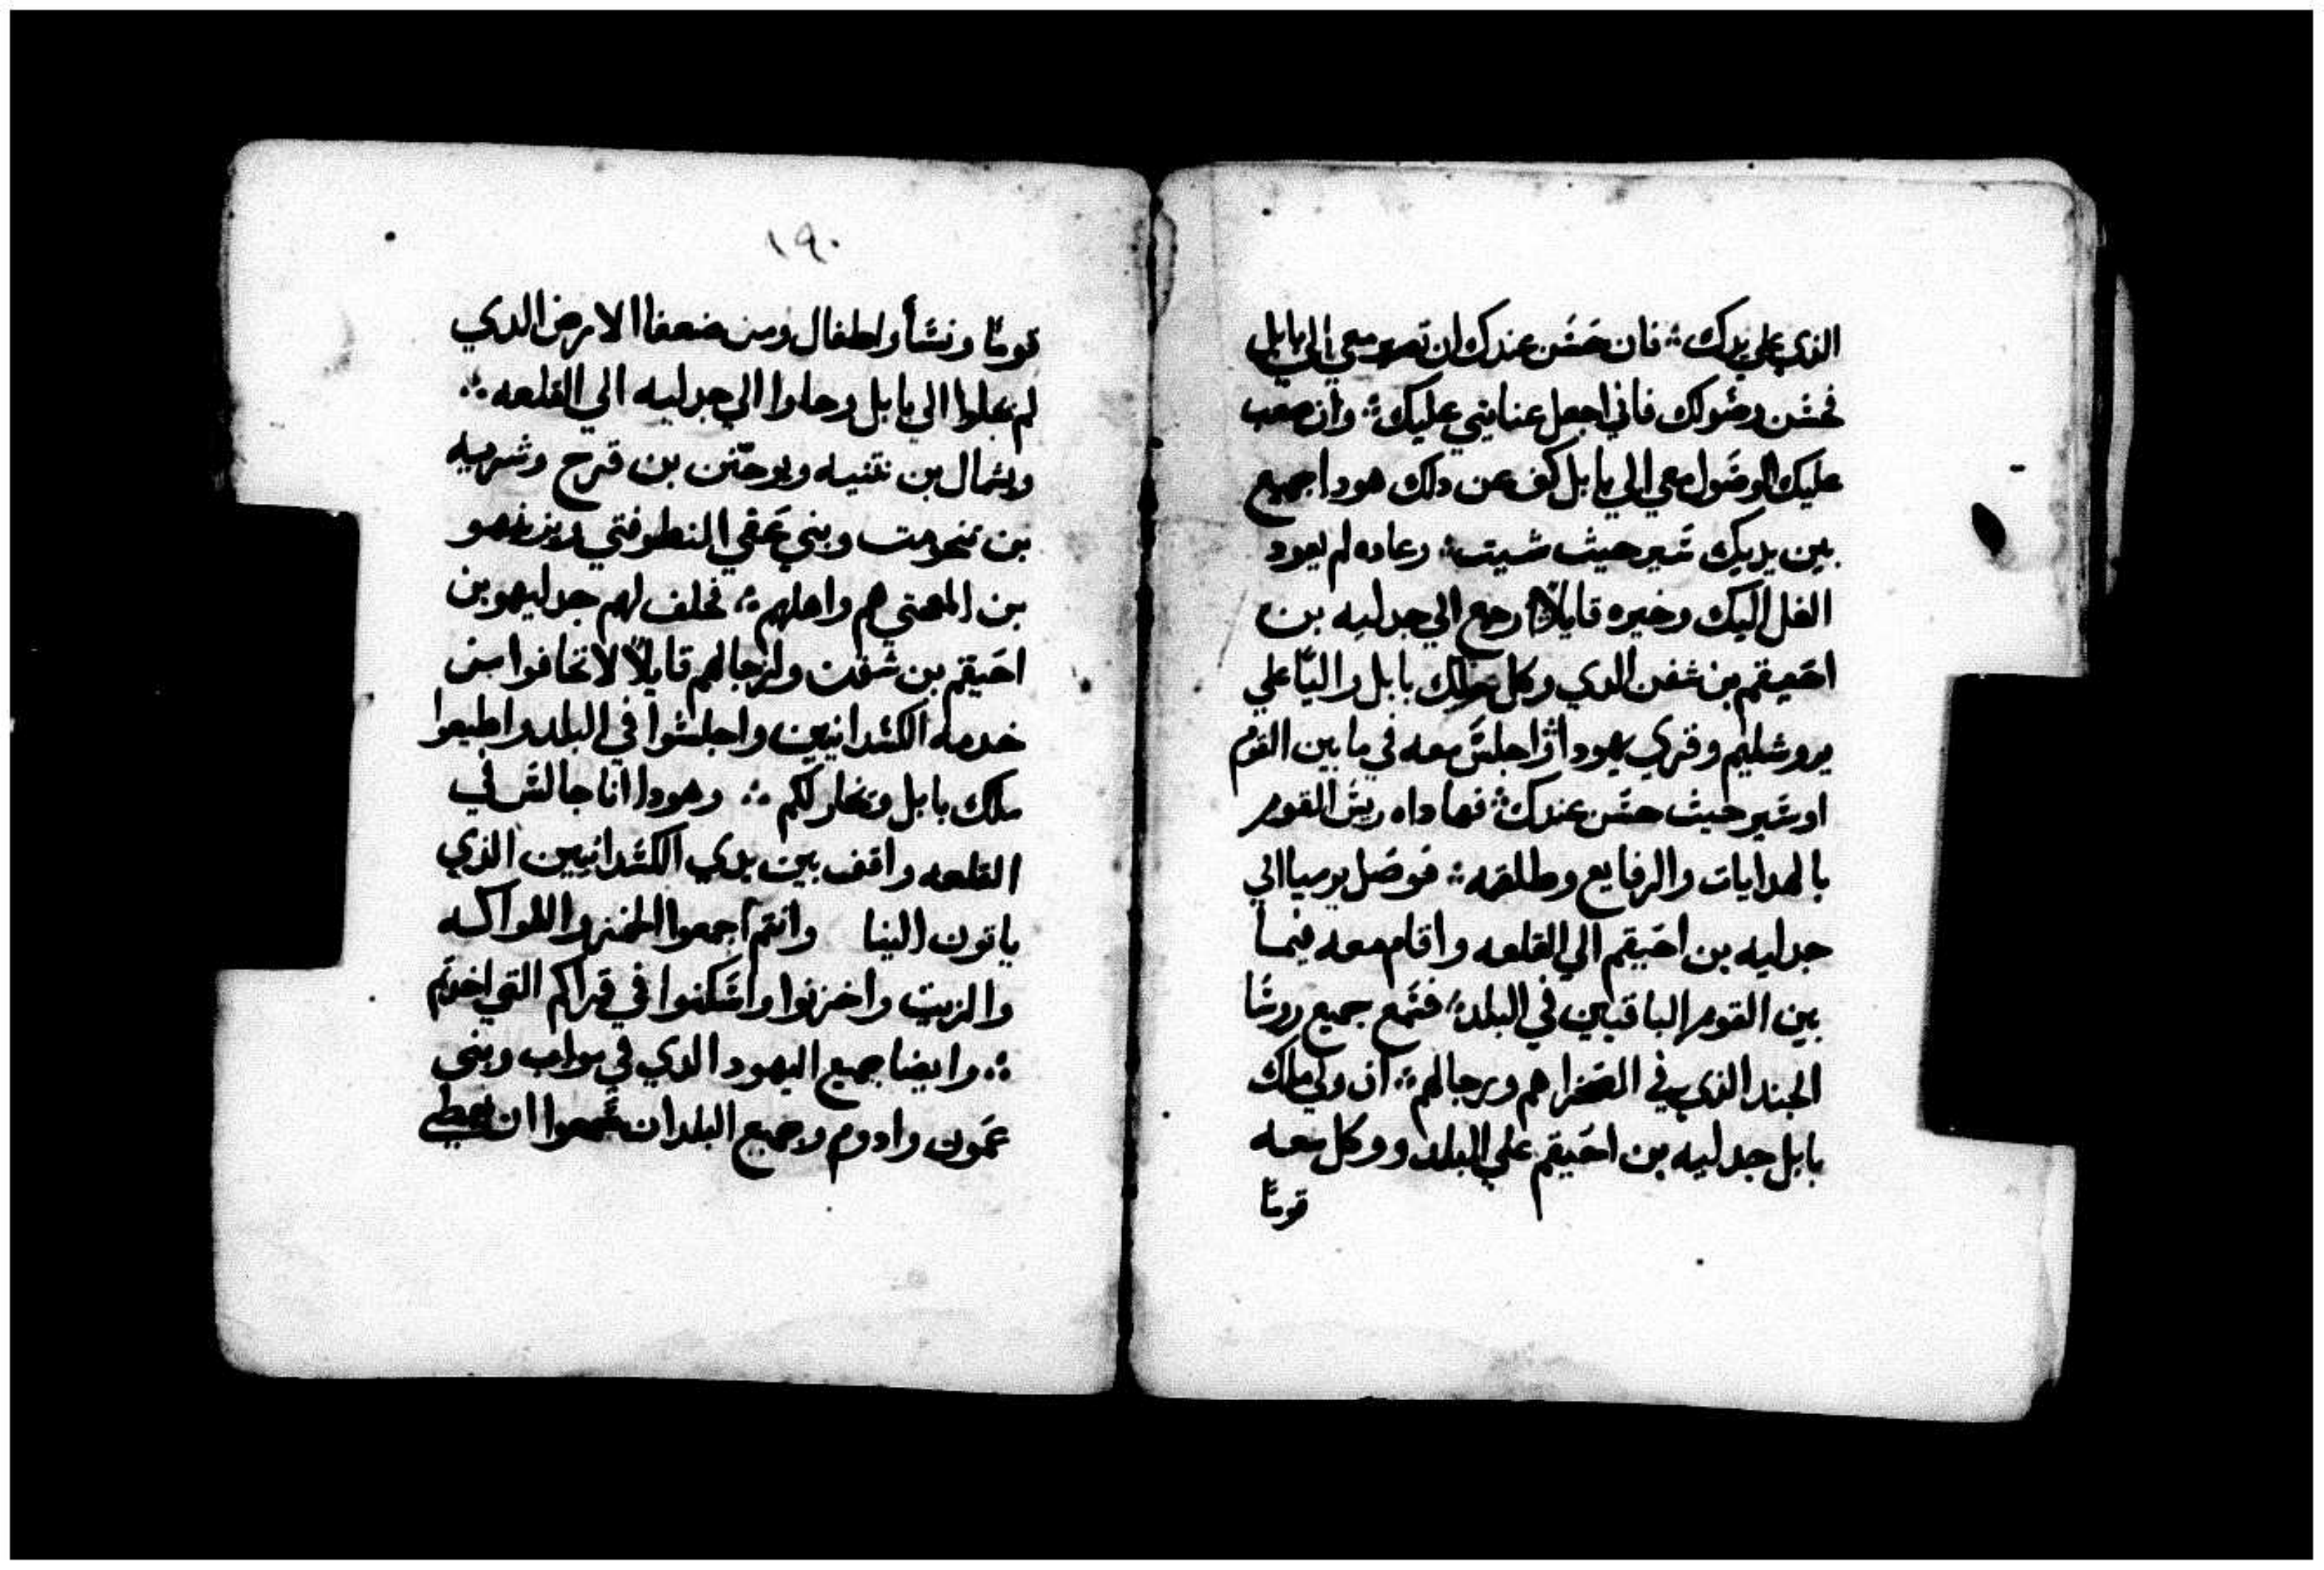 الذي علي يدك ؞ فان حسن عندك ان تصير معي الي بابل
فحسن وصولك فاني اجعل عنايتي عليك ؞ وان صعب
عليك الوصول معي الي بابل كف عن دلك هودا جميع
بين يديك سير حيث شيت ؞ وعاده لم يعود
الغل اليك وخيره قايلاً ارجع الي جدليه بن
احيقم بن شفن الدي وكل ملك بابل والياً علي
يروشليم وقري يهودا واجلس معه في ما بين القوم
او سير حيث حسن عندك ؞ فهاداه ريس القوم
بالهدايات والرفايع وطلقه ؞ فوصل يرميا الي
جدليه بن احيقم الي القلعه واقام معه فيما
بين القوم الباقيين في البلد ؞ فسمع جميع روسا
الجند الذي في الصحرا هم ورجالهم ؞ ان ولي ملك
بابل جدليه بن احيقم علي البلد ووكل معه
قومًا
١٩٠
قومًا ونسأ واطفال ومن ضعفا الارض الدي
لم يجلوا الي بابل وجاوا الي جدليه الي القلعه ؞
ويشمال بن نتنيه ويوحنن بن قرح وشريه
بن تنحومت وبني عفي النطوفتي ويزنهو
بن المعتي هم واهلهم ؞ فحلف لهم جدليهو بن
احيقم بن شفن ولرجالهم قايلاً لا تخافوا من
خدمة الكسدانيين واجلسوا في البلد واطيعوا
ملك بابل وتخار لكم ؞ وهودا انا جالس في
القلعه واقف بين يدي الكسدانيين الذي
ياتون الينا وانتم اجمعوا الخمر والفواكه
والزيت واخزنوا واسكنوا في قراكم التي اخدتم
؞ وايضا جميع اليهود الدي في مواب وبني
عمون وادوم وجميع البلدان سمعوا ان يعطي